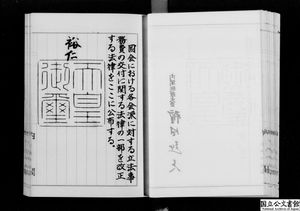 国会における各会派に対する立法事
務費の交付に関する法律の一部を改正
する法律をここに公布する。
裕仁
天皇
御璽
内閣総理大臣
国立公文書館
National Archives of Japan